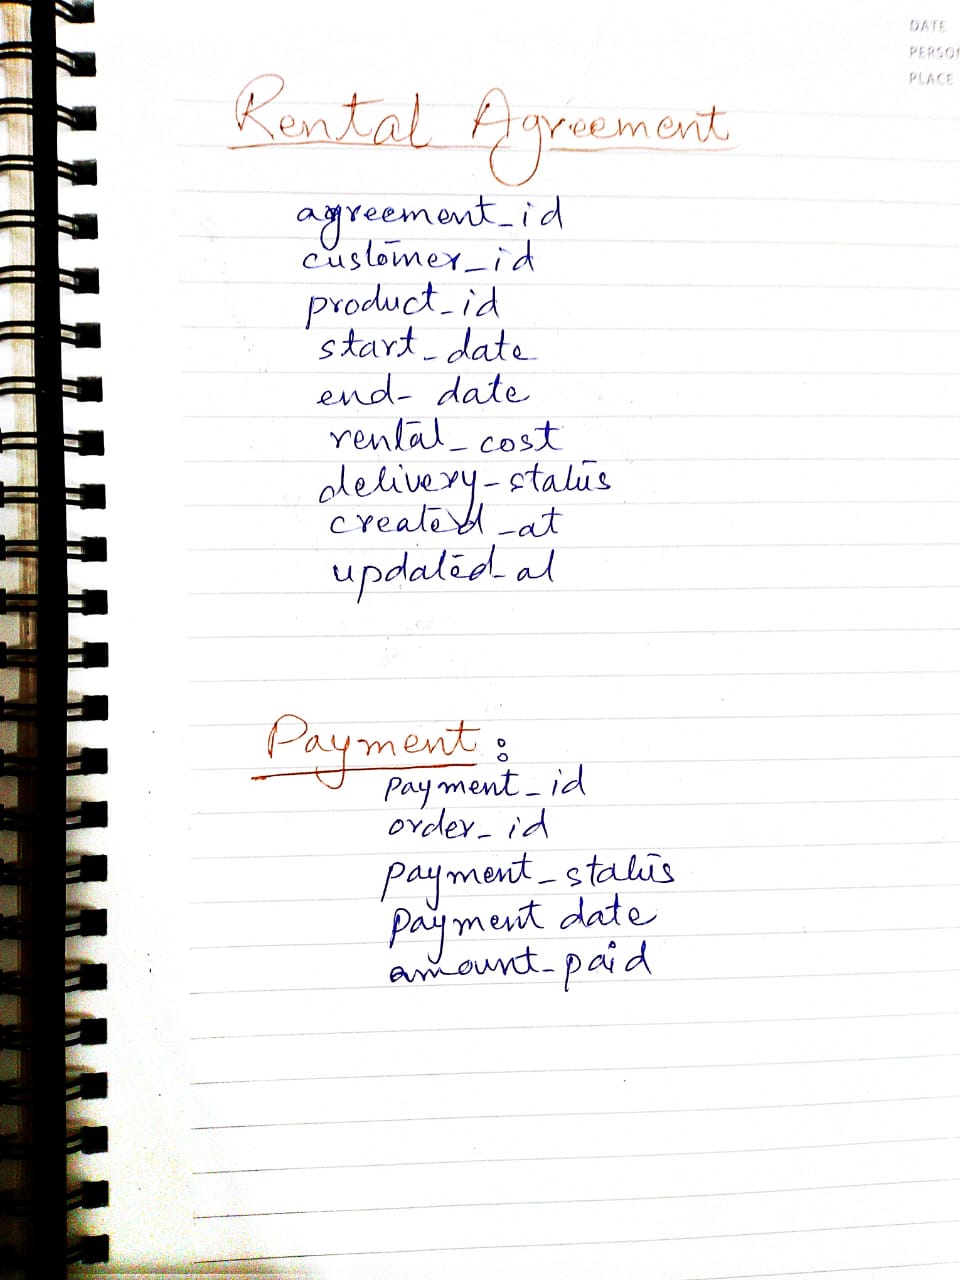 DATE
PERSON
PLACE
Rental Agreement
agreement_id
customer_id
product_id
start_date
end_date
rental_cost
delivery_status
created_at
updated_at
Payment:
payment_id
order_id
payment_status
payment date
amount_paid